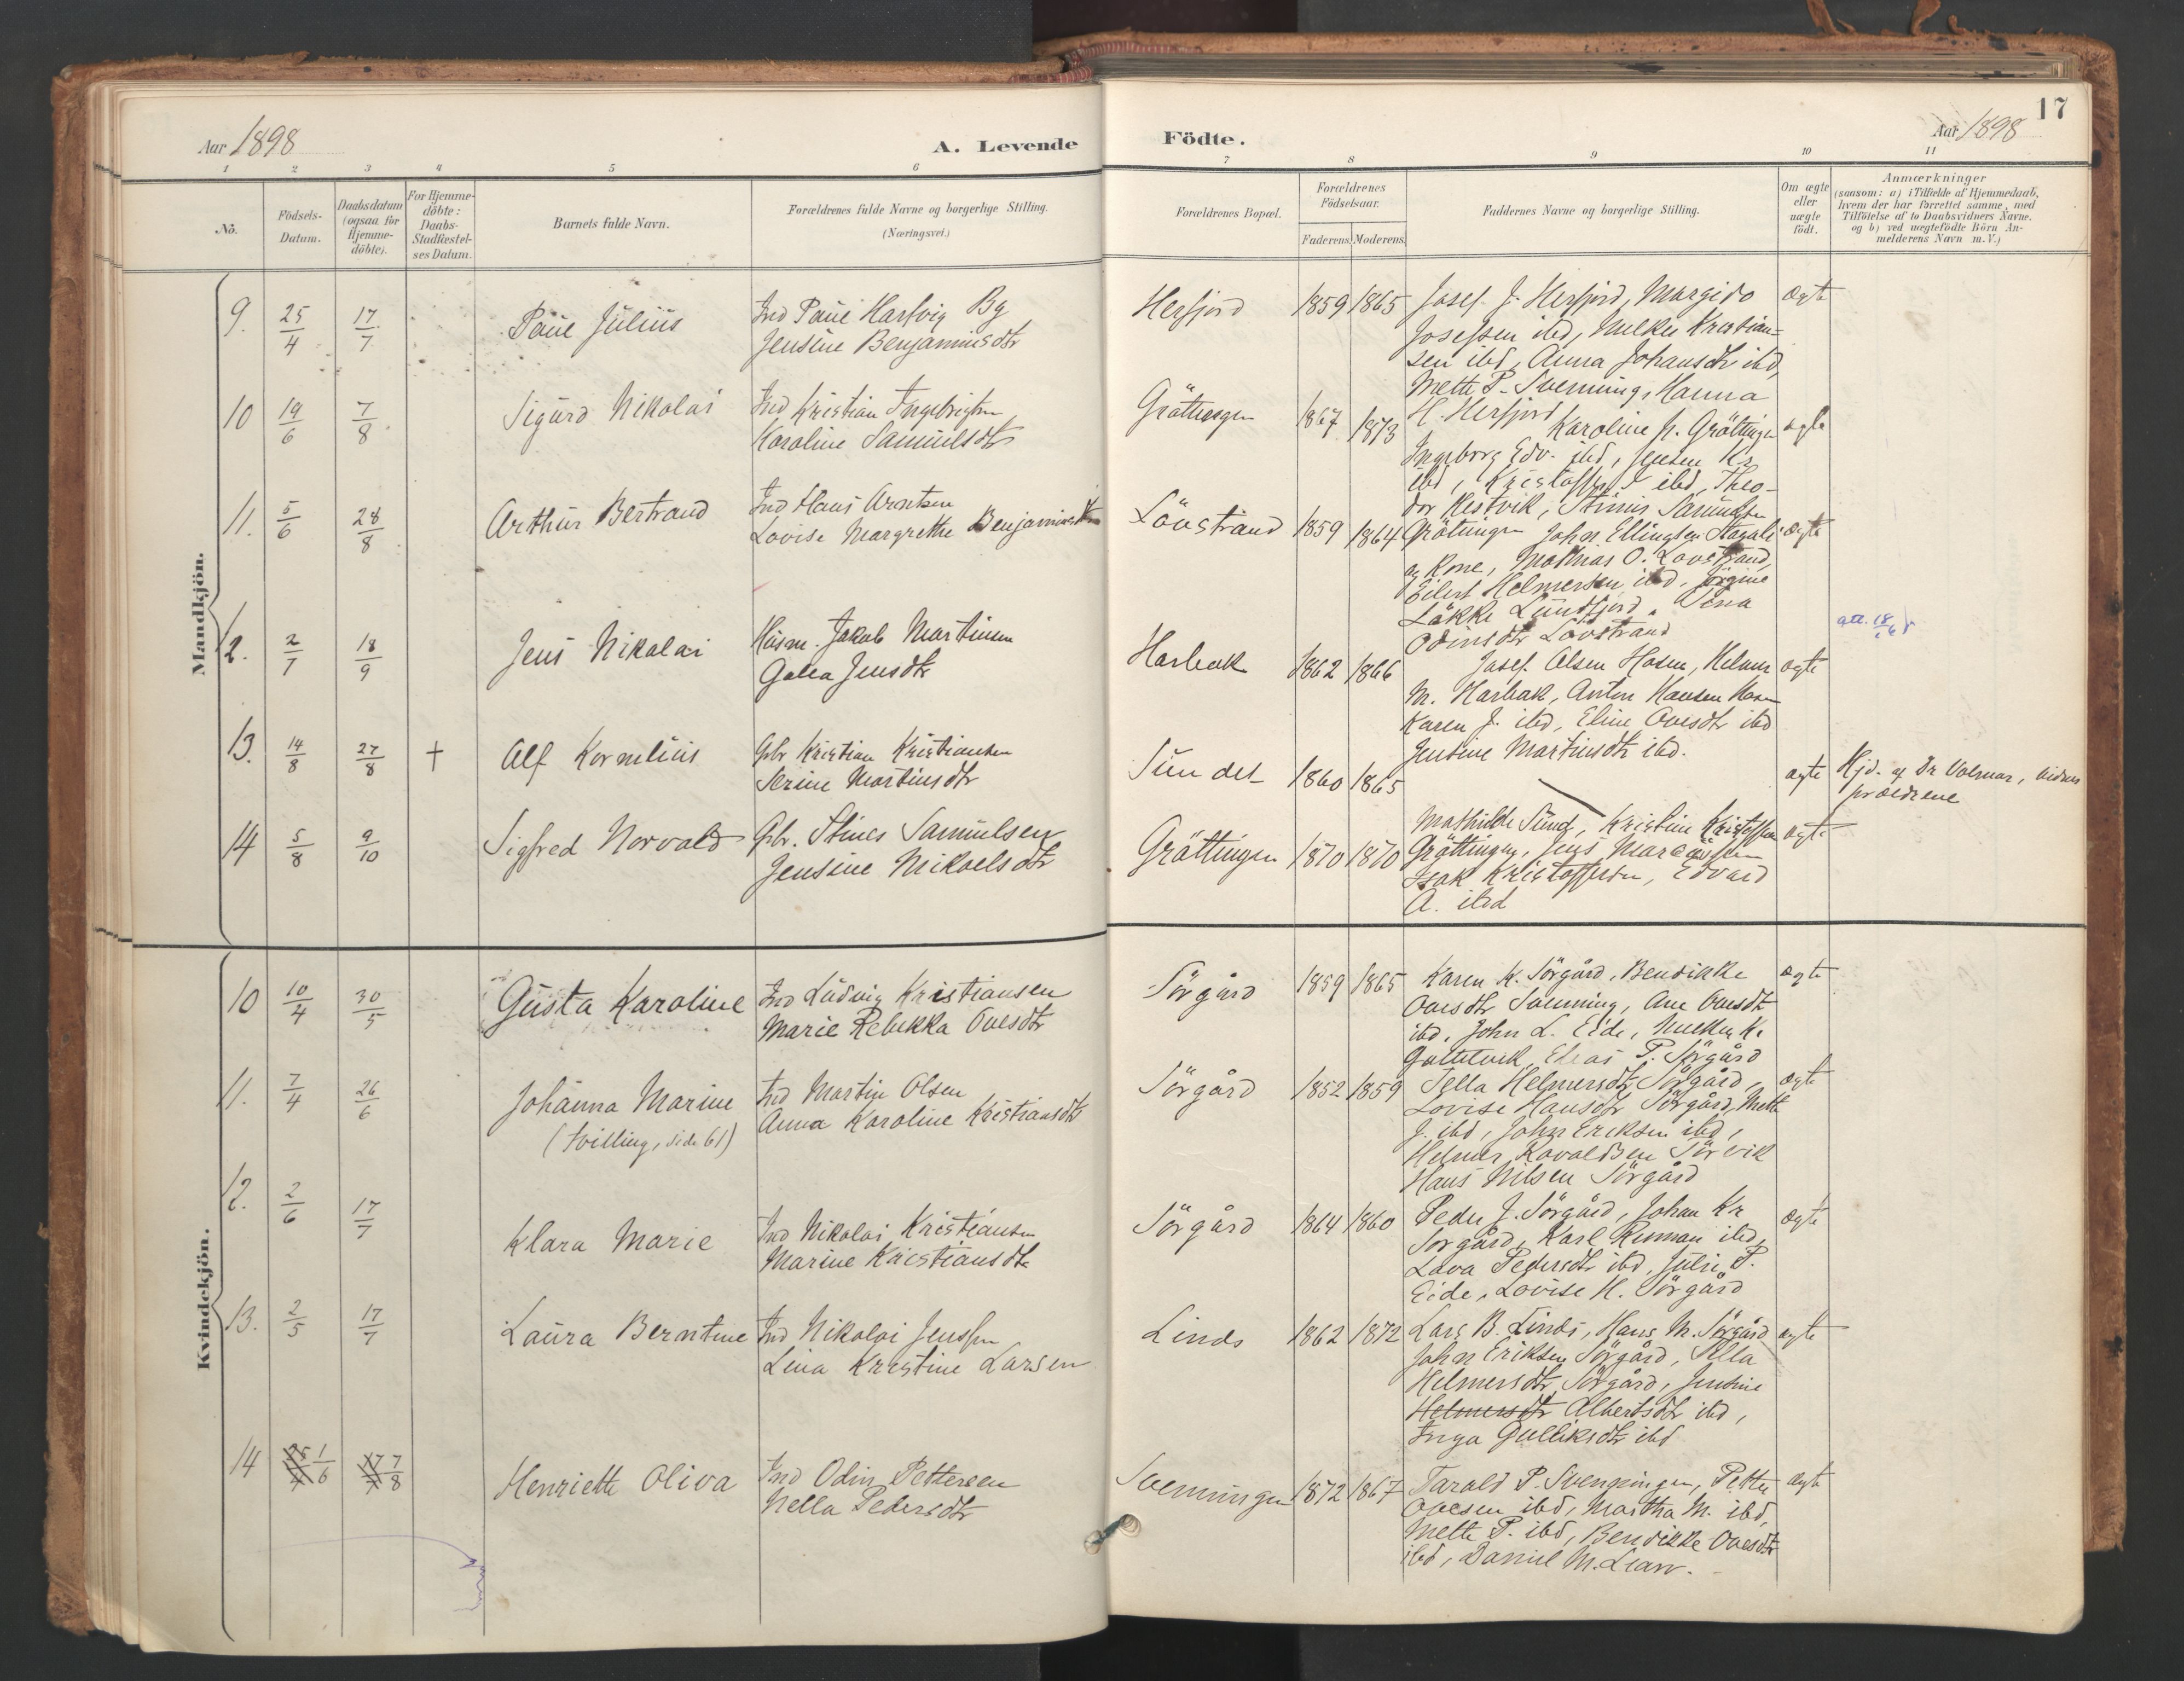 17
Aar 1898
A. Levende
Födte.
Aar 1898
1 2 3 4 5 6 7 8 9 10 11
No.
Födsels-
Datum.
Daabsdatum
(ogsaa for
Hjemme-
döbte).
For Hjemme-
döbte:
Daabs-
Stadfæstel-
ses Datum.
Barnets fulde Navn.
Forældrenes fulde Navne og borgerlige Stilling.
(Næringsvei.)
Forældrenes Bopæl.
Forældrenes
Födselsaar.
Faderens. Moderens.
Faddernes Navne og borgerlige Stilling.
Om ægte
eller
uægte
födt.
Anmærkninger
(saasom: a) i Tilfælde af Hjemmedaab,
hvem der har forrettet samme, med
Tilföielse af to Daabsvidners Navne.
og b) ved uægtefödte Börn An-
melderens Navn m.V.)
Mandkjön.
9. 25/4 17/7 Paul Julius
Ind Paul Hartvig Bg
Jensine Benjaminsdtr
Herfjord 1859 1865
Josef J. Herfjord, Margido
Josefsen ibd, Kristian-
sen ibd, Anna Johansdtr ibd,
Mette P. Svenning, Hanna
H. Herfjord
ægte
10 19/6 7/8 Sigurd Nikolai
Ind Kristian Ingebrigtsen
Karoline Samuelsdtr
Gröttingen 1867 1873
Karoline P. Gröttingen
Ingeborg Edv. ibd, Jensen Kr
ibd, ibd, Theo-
dor Kestvik, Stinus Samuelsen
Gröttingen
ægte
11. 5/6 28/8 Arthur Bertrand
Ind Hans Arntsen
Lovise Margrethe Benjaminsdtr
Lövstrand 1859 1864
John Ellingsen
og Kone, Mathias O. Lövstrand,
Eilert Helmersen ibd, Jörgine
Lökke Sundfjord, Tina
Odinsdtr Lövstrand
ægte
12. 2/7 18/9 Jens Nikolai
Husm. Jakob Martinsen
Galea Jensdtr
Harbak 1862 1866
Josef Olsen Hosen, Helmer
M. Harbak, Anton Hansen Hosen
Karen J. ibd, Eline Ovesdtr ibd
Jensine Martinsdtr ibd.
ægte
13. 14/8 27/8 † Alf Kornelius
Gbr Kristian Kristiansen
Serine Martinsdtr
Sundet 1860 1865
ægte
Hjd. af Dr Volmar, vidner
forældrene
14 5/8 9/10 Sigfred Norvald
Gbr. Stines Samuelsen
Jensine Mikaelsdtr
Gröttingen 1870 1870
Mathilde Sund, Kristine Kristoffersen
Gröttingen, Jens Marcussen
Isak Kristoffersen, Edvard
A. ibd
ægte
Kvindekjön.
10 10/4 30/5 Gusta Karoline
Ind Ludvig Kristiansen
Marie Rebekka Ovesdtr
Sörgård 1859 1865
Karen K. Sörgård, Bendikke
Ovesdtr Svenning, Ane Ovesdtr
ibd, John L. Eide, K.
Elias P. Sörgård
ægte
11. 7/4 26/6 Johanna Marine
(tvilling, side 61)
Ind Martin Olsen
Anna Karoline Kristiansdtr
Sörgård 1852 1859
Sella Helmersdtr Sörgård,
Lovise Hansdtr Sörgård, Mette
J. ibd, John Eriksen ibd,
Helmer Kavaldsen Sörvik
Hans Nilsen Sörgård
ægte
12. 2/6 17/7 Klara Marie
Ind Nikolai Kristiansen
Marine Kristiansdtr
Sörgård 1864 1860
Peder J. Sörgård, Johan Kr
Sörgård, Karl Rinnan ibd,
Lava Pedersdtr ibd, Julie P.
Eide, Lovise H. Sörgård
ægte
13. 2/5 17/7 Laura Berntine
Ind Nikolai Jenssen
Lina Kristine Larsen
Linds 1862 1872
Lars B. Linds, Hans M. Sörgård
John Eriksen Sörgård, Sella
Helmersdtr Sörgård, Jensine
Helmersdtr Albertsdtr ibd,
Inga Gulliksdtr ibd
ægte
14 1/6 7/8 Henriette Oliva
Ind Odin Pettersen
Nella Pedersdtr
Svenningen 1872 1867
Tarald P. Svenningen, Petter
Ovesen ibd, Martha M. ibd,
Mette P. ibd, Bendikke Ovesdtr
ibd, Daniel M. Lian.
ægte